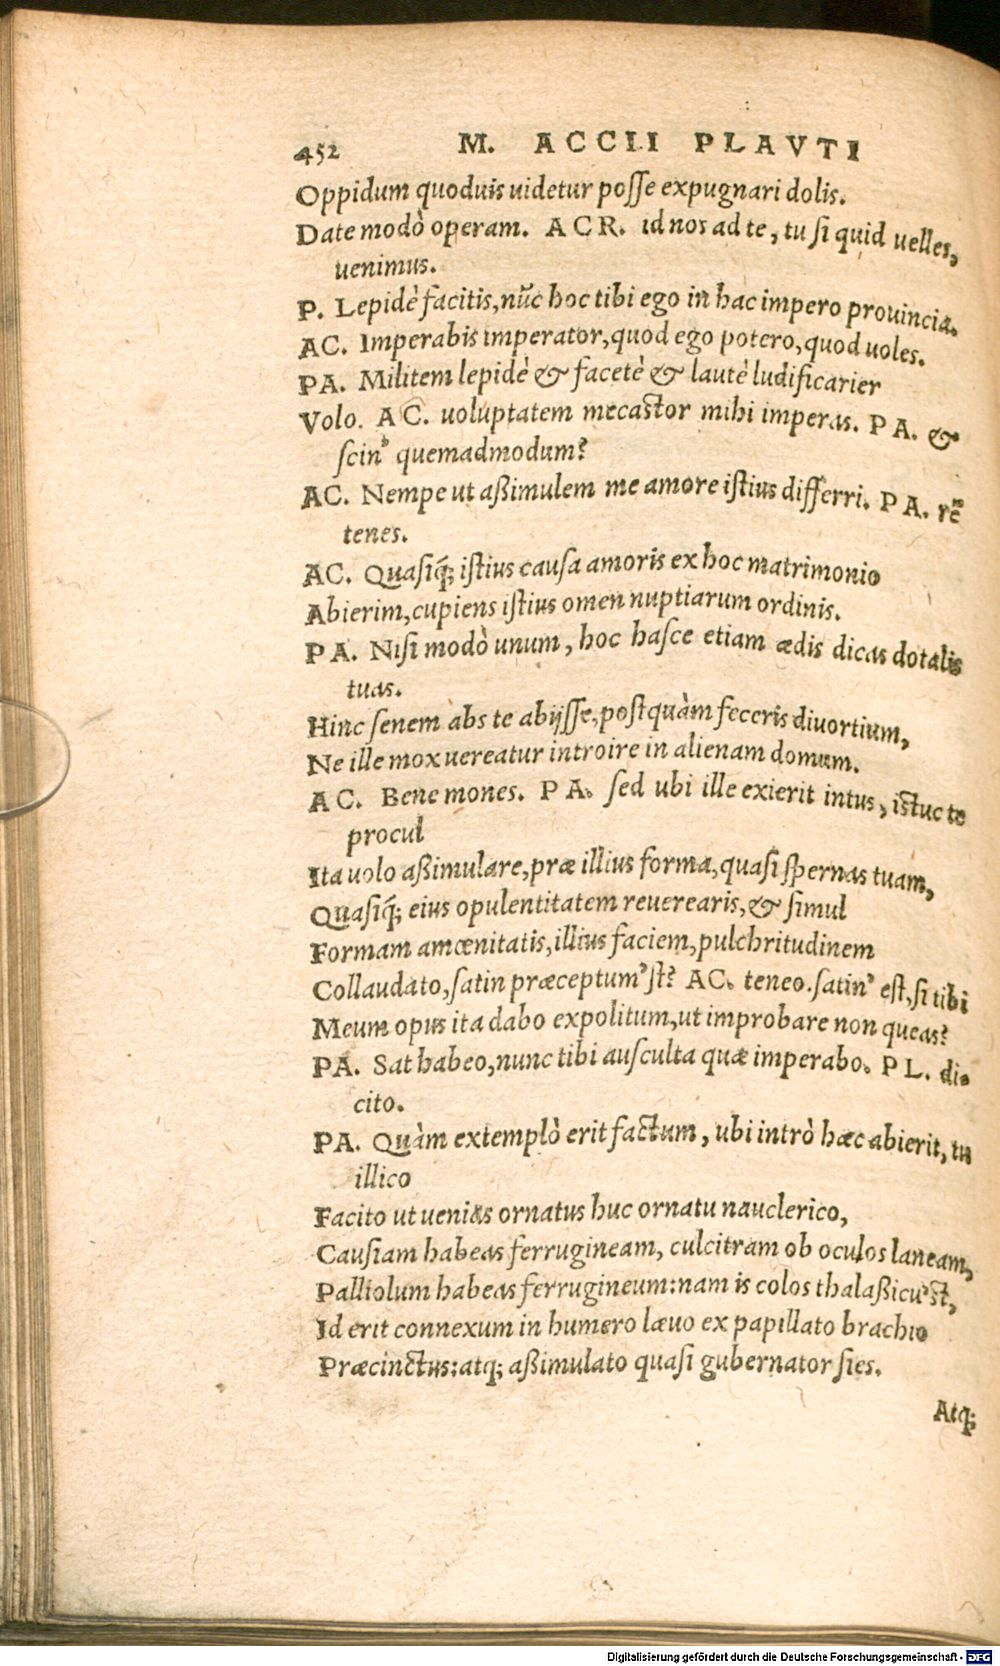 452 M. ACCII PLAVTI
Oppidum quoduis uidetur posse expugnari dolis.
Date modò operam. ACR. id nos ad te, tu si quid uelles,
uenimus.
P. Lepidè facitis, nũc hoc tibi ego in hac impero prouincia.
AC. Imperabis imperator, quod ego potero, quod uoles.
PA. Militem lepidè & facetè & lautè ludificarier
Volo. AC. uoluptatem mecastor mihi imperas. PA. &
scin' quemadmodum?
AC. Nempe ut aßimulem me amore istius differri. PA. rẽ
tenes.
AC. Quasiq́; istius causa amoris ex hoc matrimonio
Abierim, cupiens istius omen nuptiarum ordinis.
PA. Nisi modò unum, hoc hasce etiam ædis dicas dotalis
tuas.
Hinc senem abs te abijsse, postquàm feceris diuortium,
Ne ille mox uereatur introire in alienam domum.
AC. Bene mones. PA. sed ubi ille exierit intus, istuc te
procul
Ita uolo aßimulare, præ illius forma, quasi spernas tuam,
Quasiq́; eius opulentitatem reuerearis, & simul
Formam amœnitatis, illius faciem, pulchritudinem
Collaudato, satin præceptum'st? AC. teneo. satin' est, si tibi
Meum opus ita dabo expolitum, ut improbare non queas?
PA. Sat habeo, nunc tibi ausculta quæ imperabo. PL. di-
cito.
PA. Quàm extemplò erit factum, ubi intrò hæc abierit, tu
illico
Facito ut uenias ornatus huc ornatu nauclerico,
Causiam habeas ferrugineam, culcitram ob oculos laneam,
Palliolum habeas ferrugineum: nam is colos thalaßicu'st,
Id erit connexum in humero læuo ex papillato brachio
Præcinctus: atq; aßimulato quasi gubernator sies.
Atq;
Digitalisierung gefördert durch die Deutsche Forschungsgemeinschaft - DFG